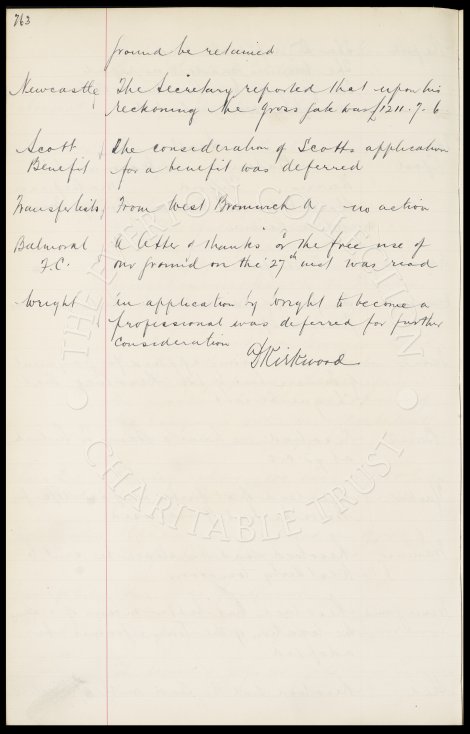 763
ground be retained
Newcastle The Secretary reported that upon his
reckoning the gross gate was £1211.7.6
Scott The consideration of Scotts application
Benefit for a benefit was deferred
Transfer lists From West Bromwich A no action
Balmoral A letter of thanks for the free use of
F.C. our ground on the 27th inst was read
Wright An application by Wright to become a
professional was deferred for further
consideration
DKirkwood
THE EVERTON COLLECTION
CHARITABLE TRUST